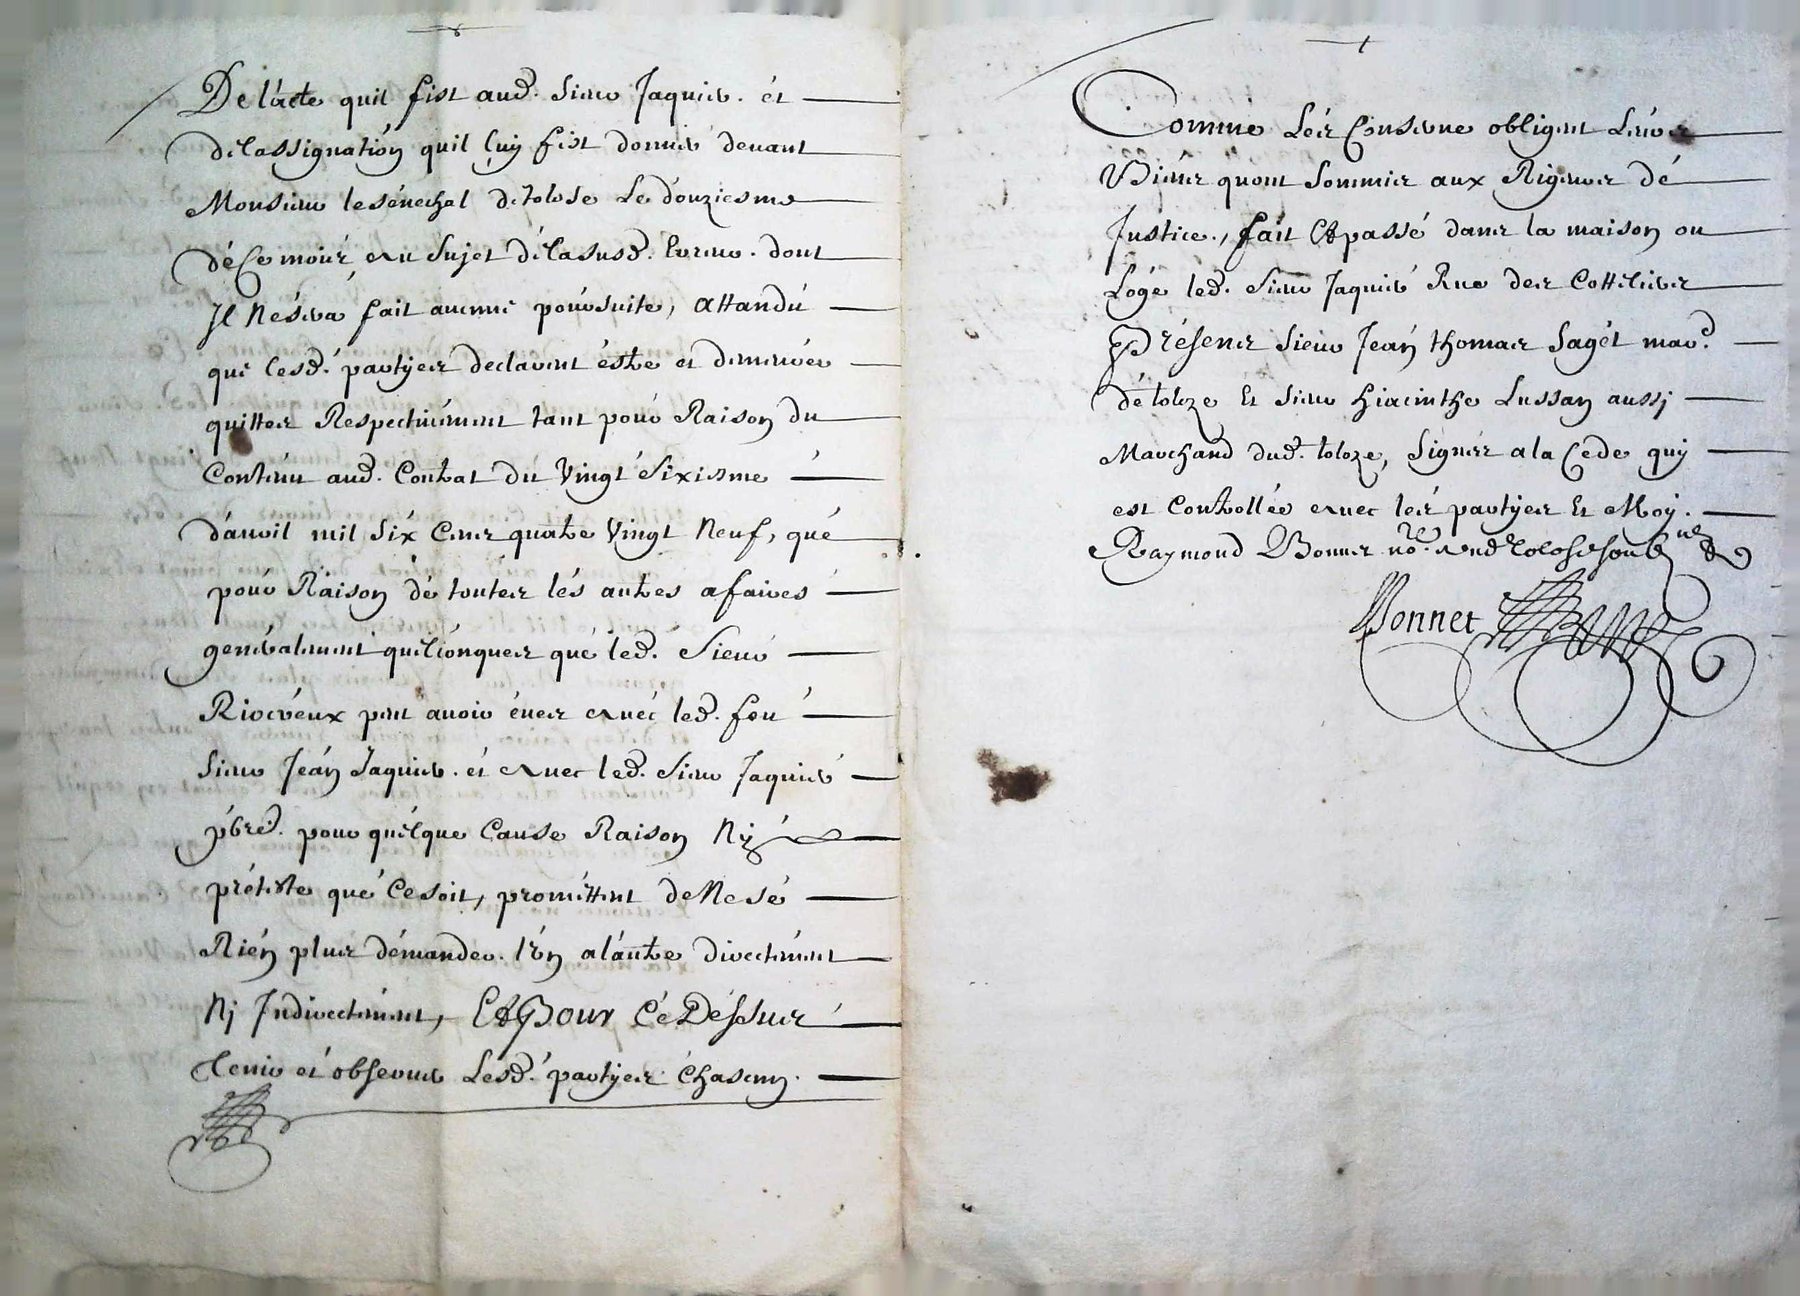 De lacte quil fist aud. Sieur Jaquier. et
delassignation quil luy fist donner devant
Monsieur le sénechal de tolose Le douziesme
de Ce mois, au Sujet de lasusd. dont
Il Nésera fait aucune poursuite, attandu
que lesd. partyes declarent éstre et demurer
quittes Respectivement tant pour Raison du
Contenu aud. Contrat du Vingt Sixisme
d'avril mil Six Cens quatre Vingt Neuf, que
pour Raison de toutes lés autres afaires
generalement quelionques que led. Sieur
peut avoir éues avec led. feu
Sieur Jean Jaquier. et avec led. Sieur Jaquier
pbre. pour quélque Cause Raison Ny
prétexte que Cesoit, prométtent de Ne sé
Rién plus démander. lun a lautre directement
Nj Indirectement, Et Pour Cé Déssus
tenir et observer Lesd. partyes Chascun.
Comme Les Conserne obligent Leurs
Biens quont Sommis aux Rigeurs dé
Justice, fait Et passé dans la maison ou
Logé led. Sieur Jaquier Rue des Cotteliers
Présens Sieur Jean thomas Sagét mar.d
dé toloze Et Sieur hiacinthe Lussan aussj
Marchand dud. toloze, Signés a la Cede quy
est Controllée avec les partyes Et Moy.
Raymond Bonnet no.re Soub.né
Bonnet